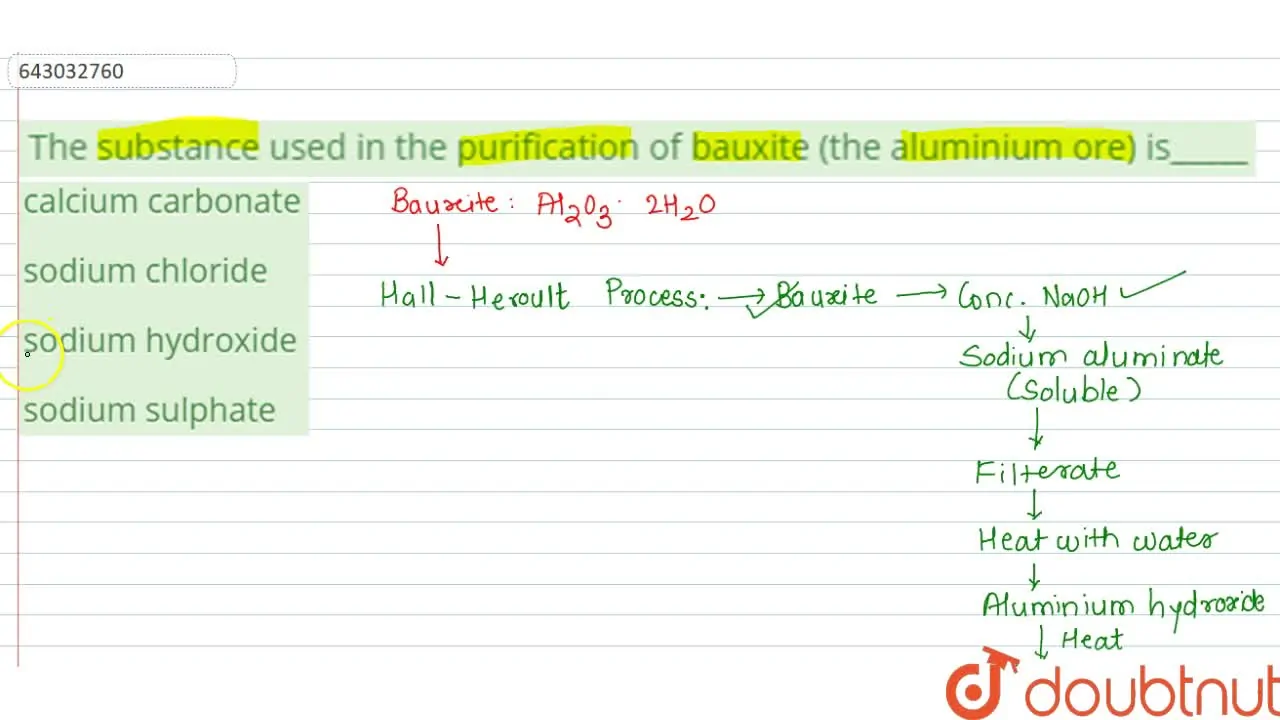 643032760
The substance used in the purification of bauxite (the aluminium ore) is_____
calcium carbonate
sodium chloride
sodium hydroxide
sodium sulphate
Bauxite : Al2O3. 2H2O
Hall - Heroult Process: → Bauxite → Conc. NaOH ✓
↓
Sodium aluminate
(Soluble)
↓
Filterate
↓
Heat with water
↓
Aluminium hydroxide
↓ Heat
doubtnut